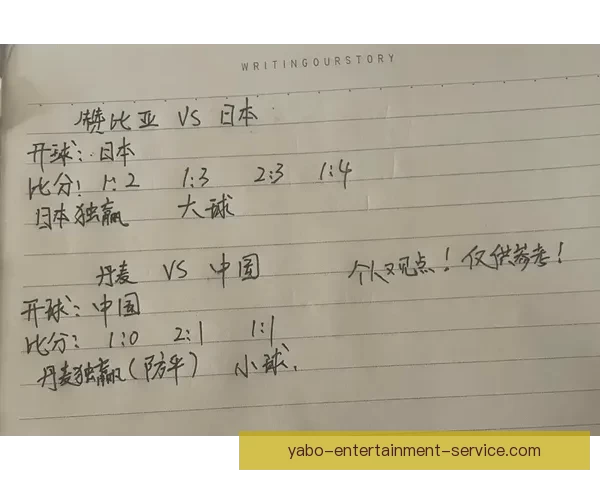 WRITINGOURSTORY
赞比亚 VS 日本
开球：日本
比分：1:2 1:3 2:3 1:4
日本独赢 大球
丹麦 VS 中国
个人观点！仅供参考！
开球：中国
比分：1:0 2:1 1:1
丹麦独赢（防平） 小球.
yabo-entertainment-service.com